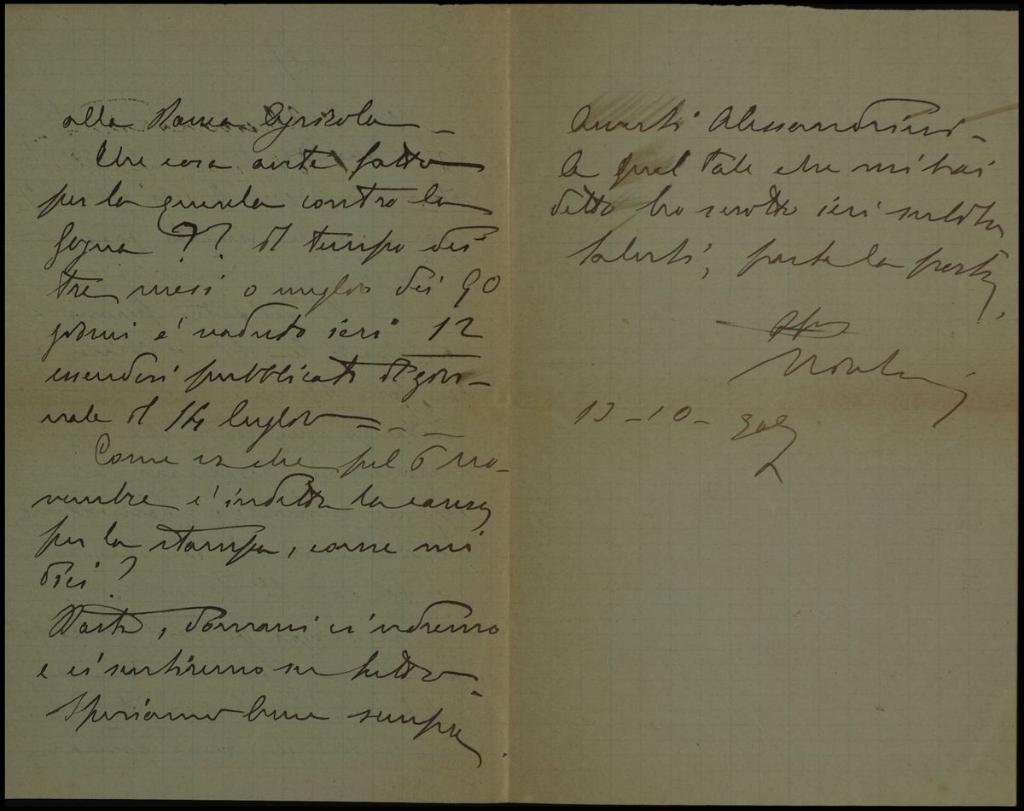 alla Roma Agricola –
Che cosa avete fatto
per la querela contro la
Gogna ?? Il tempo dei
tre mesi o meglio dei 90
giorni è scaduto ieri 12
essendosi pubblicato il gior-
nale il 14 luglio = – –
Come va che pel 6 no-
vembre è indetta la causa
per la stampa, come mi
dici?
Basta, domani ci vedremo
e ci sentiremo su tutto.
Speriamo bene sempre
Avverti Alessandrini –
A quel tale che mi hai
detto ho scritto ieri subito
Saluti, parte la posta
13 – 10 –